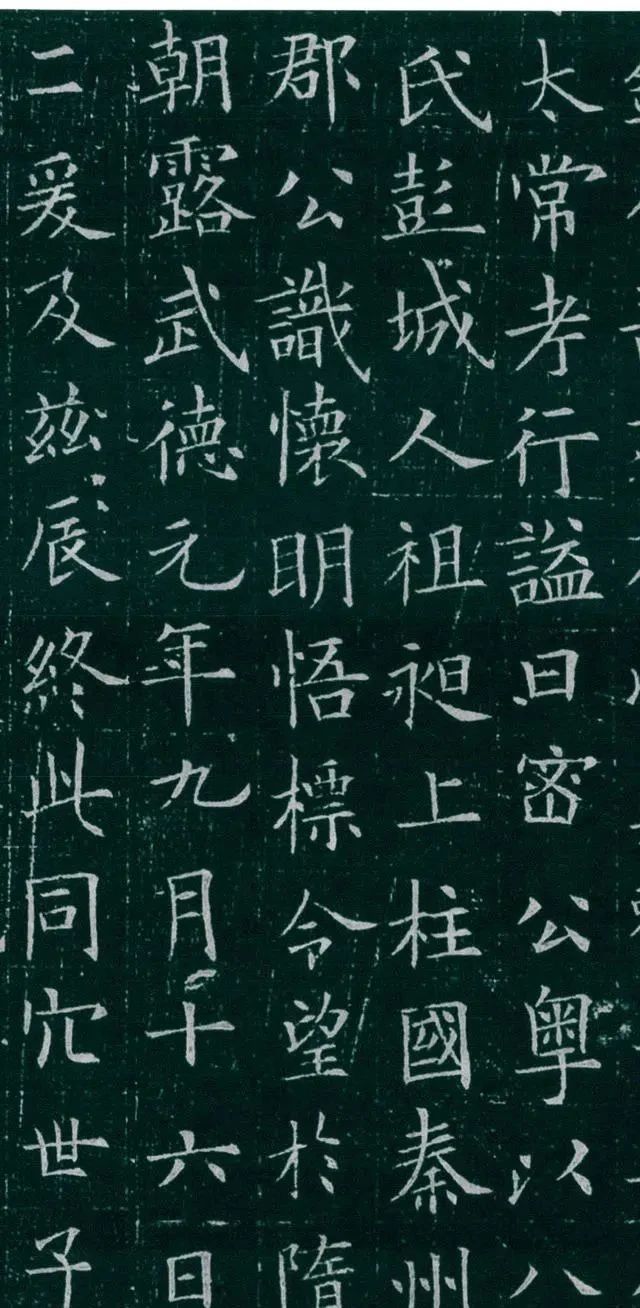 太常考行謚曰密公粵以八
氏彭城人祖昶上柱國秦州
郡公識懷明悟標令望於隋
朝露武德元年九月十六日
二爰及茲辰終此同穴世子